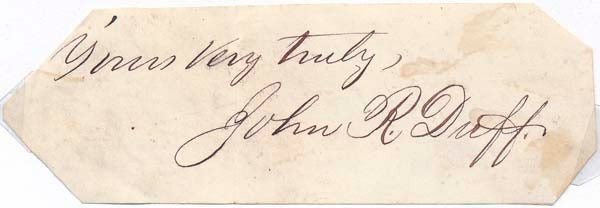 Yours very truly,
John R. Duff.